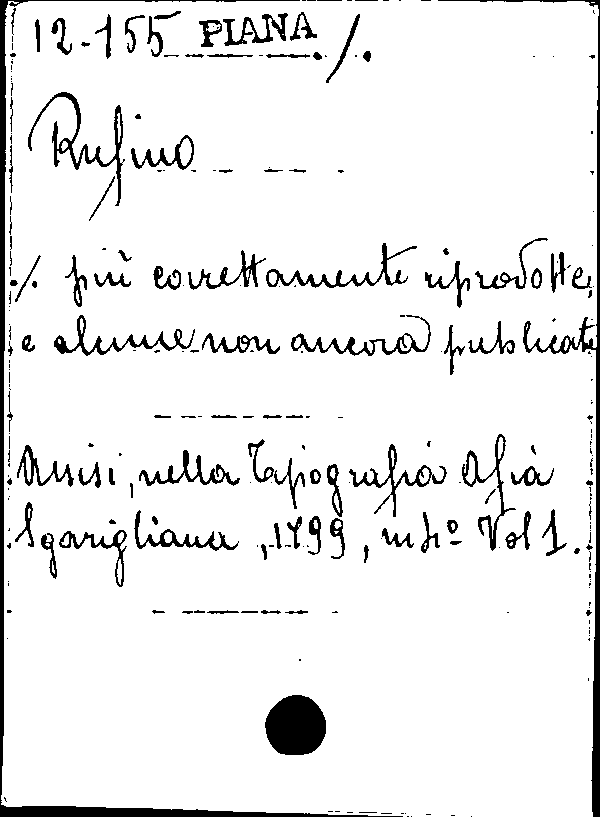 12-155 PIANA ./.
Rufino
./. più correttamente riprodotte,
e alcune non ancora publicate
Assisi, nella Tapografia Afia
Sgarigliana, 1799, in 4º Vol 1.